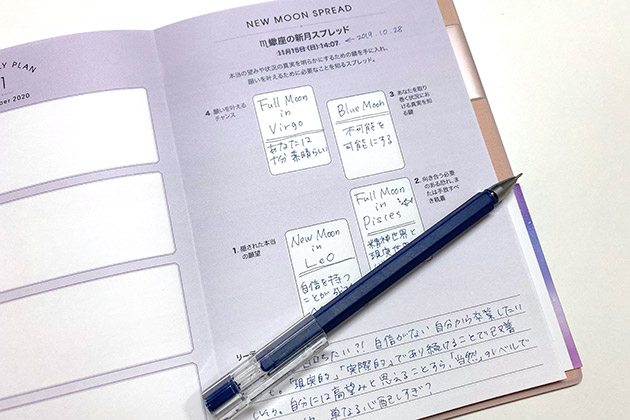 LY PLAN
11
ber 2020
NEW MOON SPREAD
♏蠍座の新月スプレッド
11月15日(日)14:07 ←2019.10.28
本当の望みや状況の真実を明らかにするための鍵を手に入れ、
願いを叶えるために必要なことを知るスプレッド。
4. 願いを叶える
チャンス
Full Moon
in
Virgo
あなたは
十分素晴らしい
Blue Moon
不可能を
可能にする
3. あなたを取り
巻く状況にお
ける真実を知
る鍵
Full Moon
in
Pisces
精神世界と
現実世界
2. 向き合う必要
のある恐れ、ま
たは手放すべ
き執着
1. 隠された本当
の願望
New Moon
in
Leo
自信を持つ
ことが
リー
たい?! 自信がない自分から卒業したい
「現実的」「実際的」であり続けることで
自分には高望みと思えることすら、「当然」のレベルで
単なる心配しすぎ?